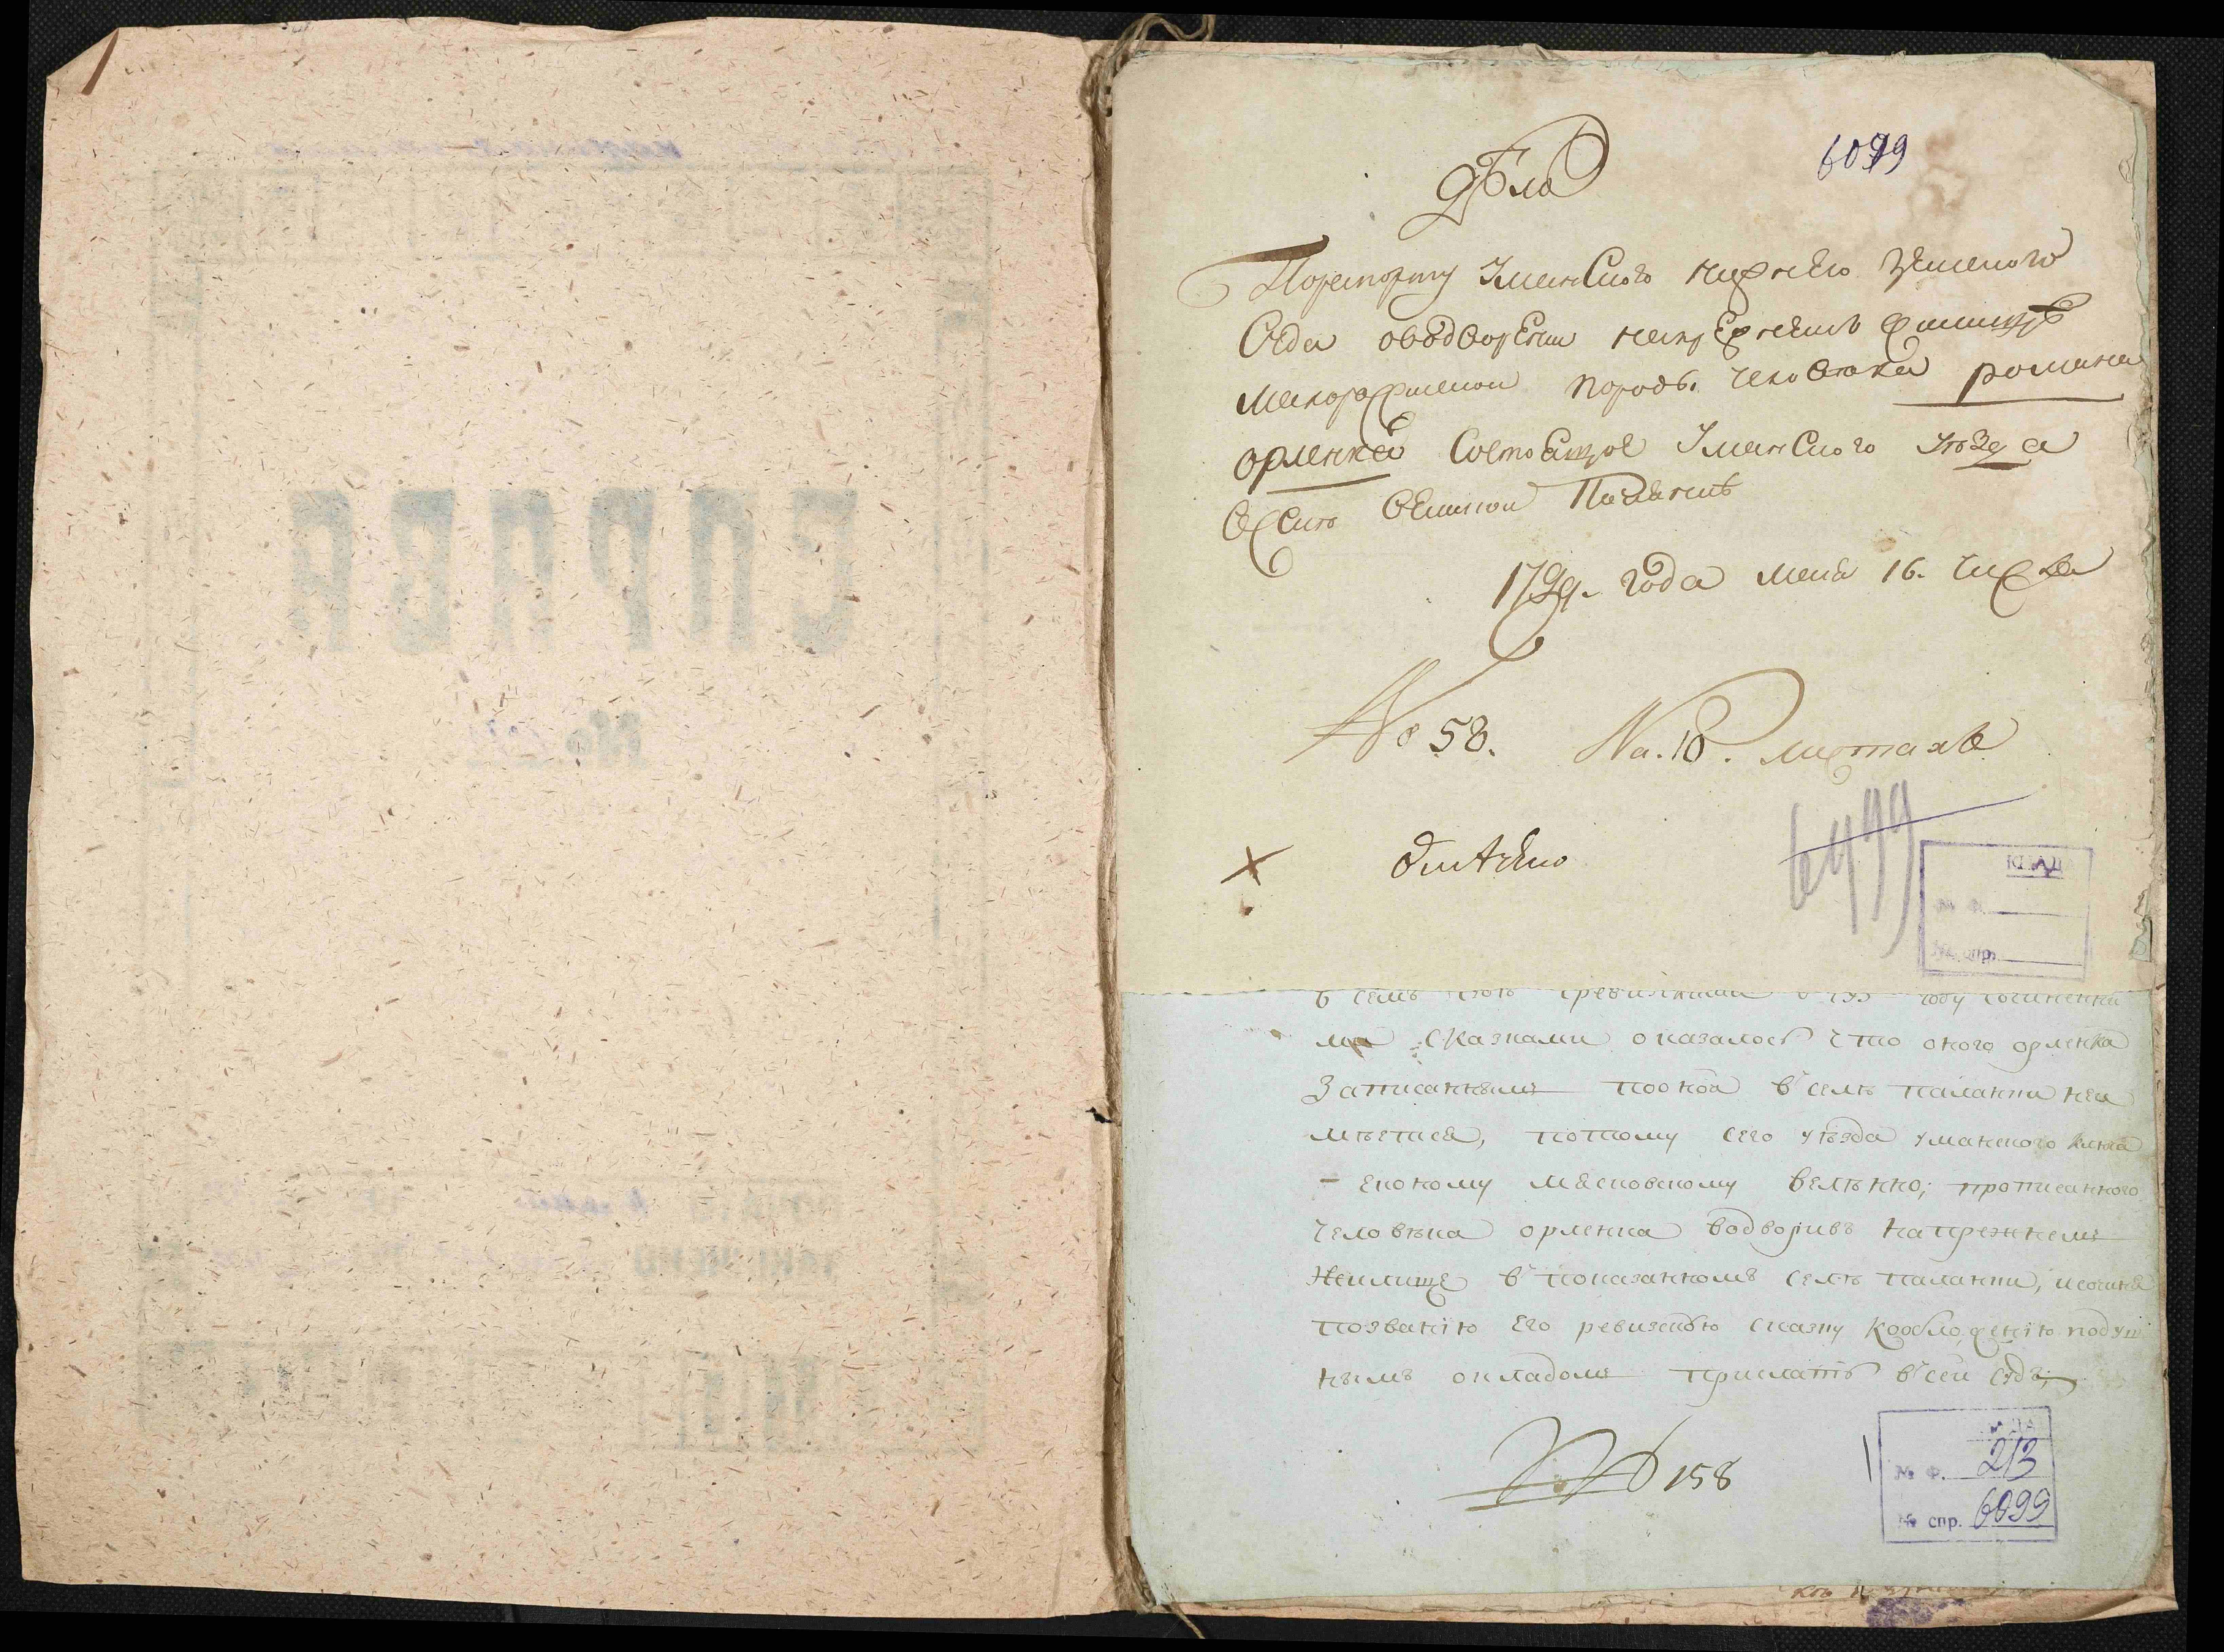 6099
Дѣло
Порапорту Уманского нижнего земского
Суда оводворении напрежнемъ жилищѣ
малороссийской породы человека романа
орленка Состоящое Уманского уѣзда
въ Селѣ Паланкѣ
1799. года мая 16. числа
№ 58. На. 10. листахъ
6499
КЦАД
№ Ф.
№ спр.
году сочиненни
ми сказками оказалось что оного орленка
Записаннымъ поона в селѣ паланки неи
мѣется, потому сего уѣзда уманского
мясковскому велѣнно; прописанного
человѣка орленка водворивъ напрежнемъ
жилище в показанномъ селѣ паланки,
позванію его ревизскую сказку подуш
нымъ окладомъ прислать в сей судъ,
№ 158
№ Ф. 213
№ спр. 6099
СПРАВА
№